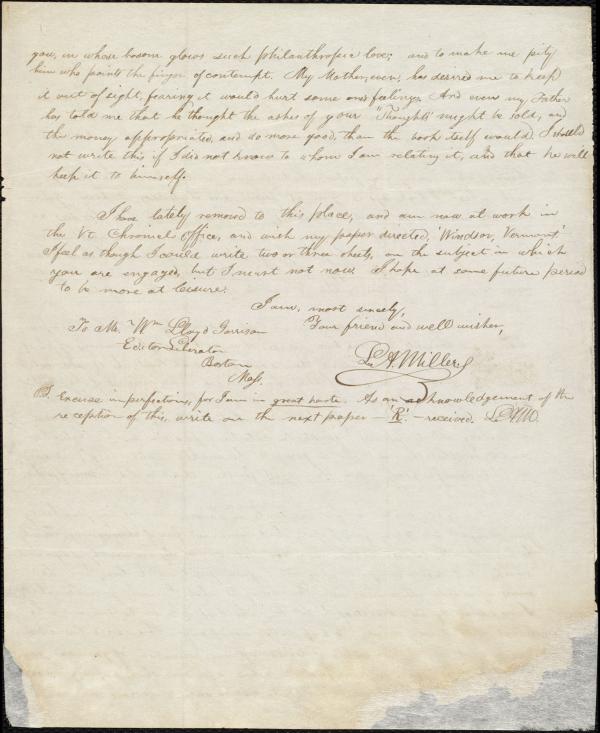 you, in whose bosom glows such philanthropic love; and to make me pity
him who points the finger of contempt. My Mother, even, has desired me to keep
it out of sight, fearing it would hurt some ones feelings. And even my Father
has told me that he thought the ashes of your "Thoughts" might be sold, and
the money appropriated, and do more good, than the book itself would. I should
not write this if I did not know to whom I am relating it, and that he will
keep it to himself.
I have lately removed to this place, and am now at work in
the Vt. Chronicl Office, and wish my paper directed, 'Windsor, Vermont.'
I feel as though I could write two or three sheets, on the subject in which
you are engaged, but I must not now. I hope at some future period
to be more at leisure.
I am, most sincely,
Your friend and well wisher,
To Mr. Wm Lloyd Garrison
Editor Liberator
Boston
Mass.
L. A. Miller
P.S. Excuse imperfections, for I am in great haste. As an acknowledgement of the
reception of this, write on the next paper — 'R' — received. L.A.M.